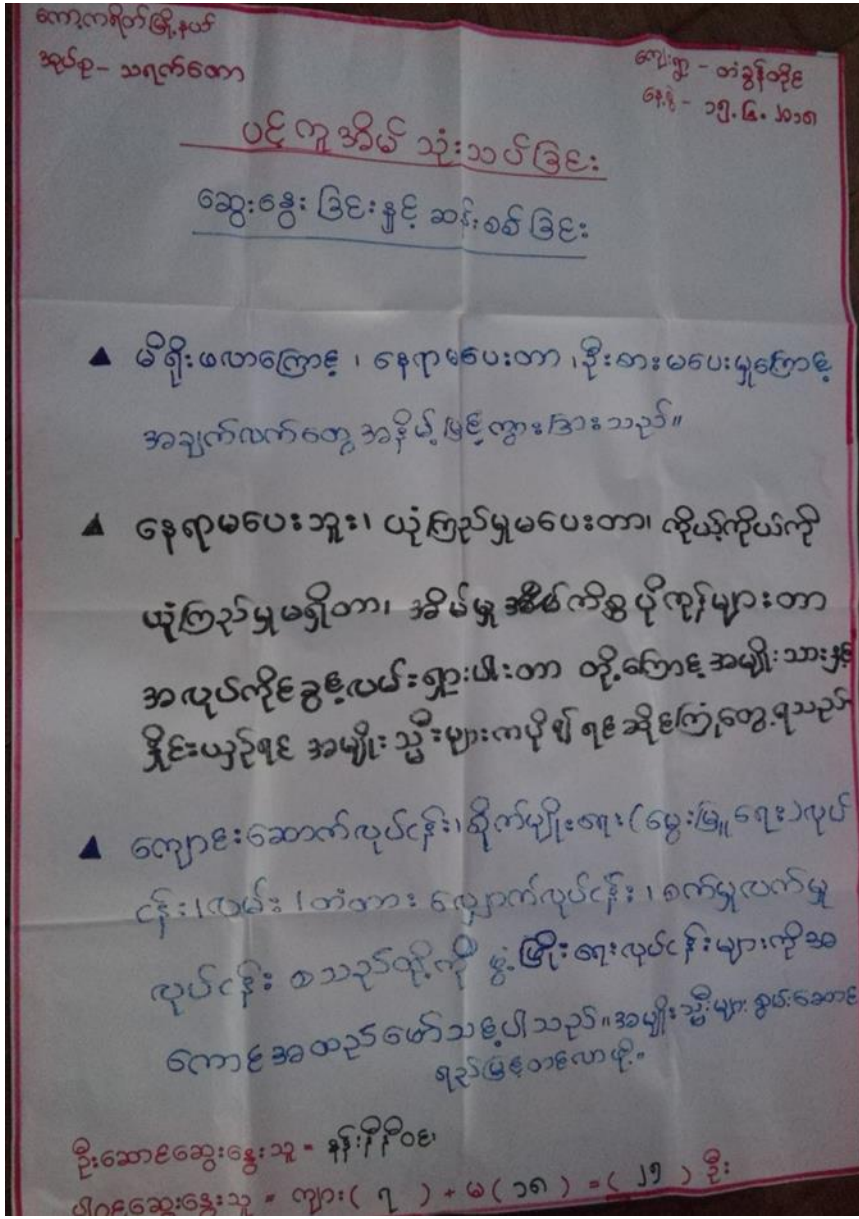 ကော့ကရိတ်မြို့နယ်
အုပ်စု - သရက်တော
ကျေးရွာ - တံခွန်တိုင်
နေ့စွဲ - ၁၅.၆.၂၀၁၈
ပင့်ကူအိမ် သုံးသပ်ခြင်း
ဆွေးနွေးခြင်းနှင့် ဆန်းစစ်ခြင်း
▲ မိရိုးဖလာကြောင့်၊ နေရာမပေးတာ၊ ဦးစားမပေးမှုကြောင့်
အချက်လက်တွေ အနိမ့်မြင့်ကွားခြားသည်။
▲ နေရာမပေးဘူး၊ ယုံကြည်မှုမပေးတာ၊ ကိုယ့်ကိုယ်ကို
ယုံကြည်မှုမရှိတာ၊ အိမ်မှု အိမ်ကိစ္စ ပိုကုန်များတာ
အလုပ်ကိုင်ခွင့်လမ်းရှားပါးတာ တို့ကြောင့် အမျိုးသားနှင့်
နှိုင်းယှဉ်ရင် အမျိုးသ္မီးများကပို၍ ရင်ဆိုင်ကြုံတွေ့ရသည်
▲ ကျောင်းဆောက်လုပ်ငန်း၊ စိုက်ပျိုးရေး (မွေးမြူရေး) လုပ်
ငန်း၊ လမ်း၊ တံတား လျှောက်လုပ်ငန်း၊ စက်မှုလက်မှု
လုပ်ငန်း စသည်တို့ကို ဖွံ့ဖြိုးရေးလုပ်ငန်းများကိုအ
ကောင်အထည်ဖော်သင့်ပါသည်။ အမျိုးသ္မီးများ စွမ်းဆောင်
ရည်မြင့်တလာဖို့။
ဦးဆောင်ဆွေးနွေးသူ = နန်းနီနီဝင်း
ပါဝင်ဆွေးနွေးသူ = ကျား( ၇ ) + မ( ၁၈ ) = ( ၂၅ ) ဦး